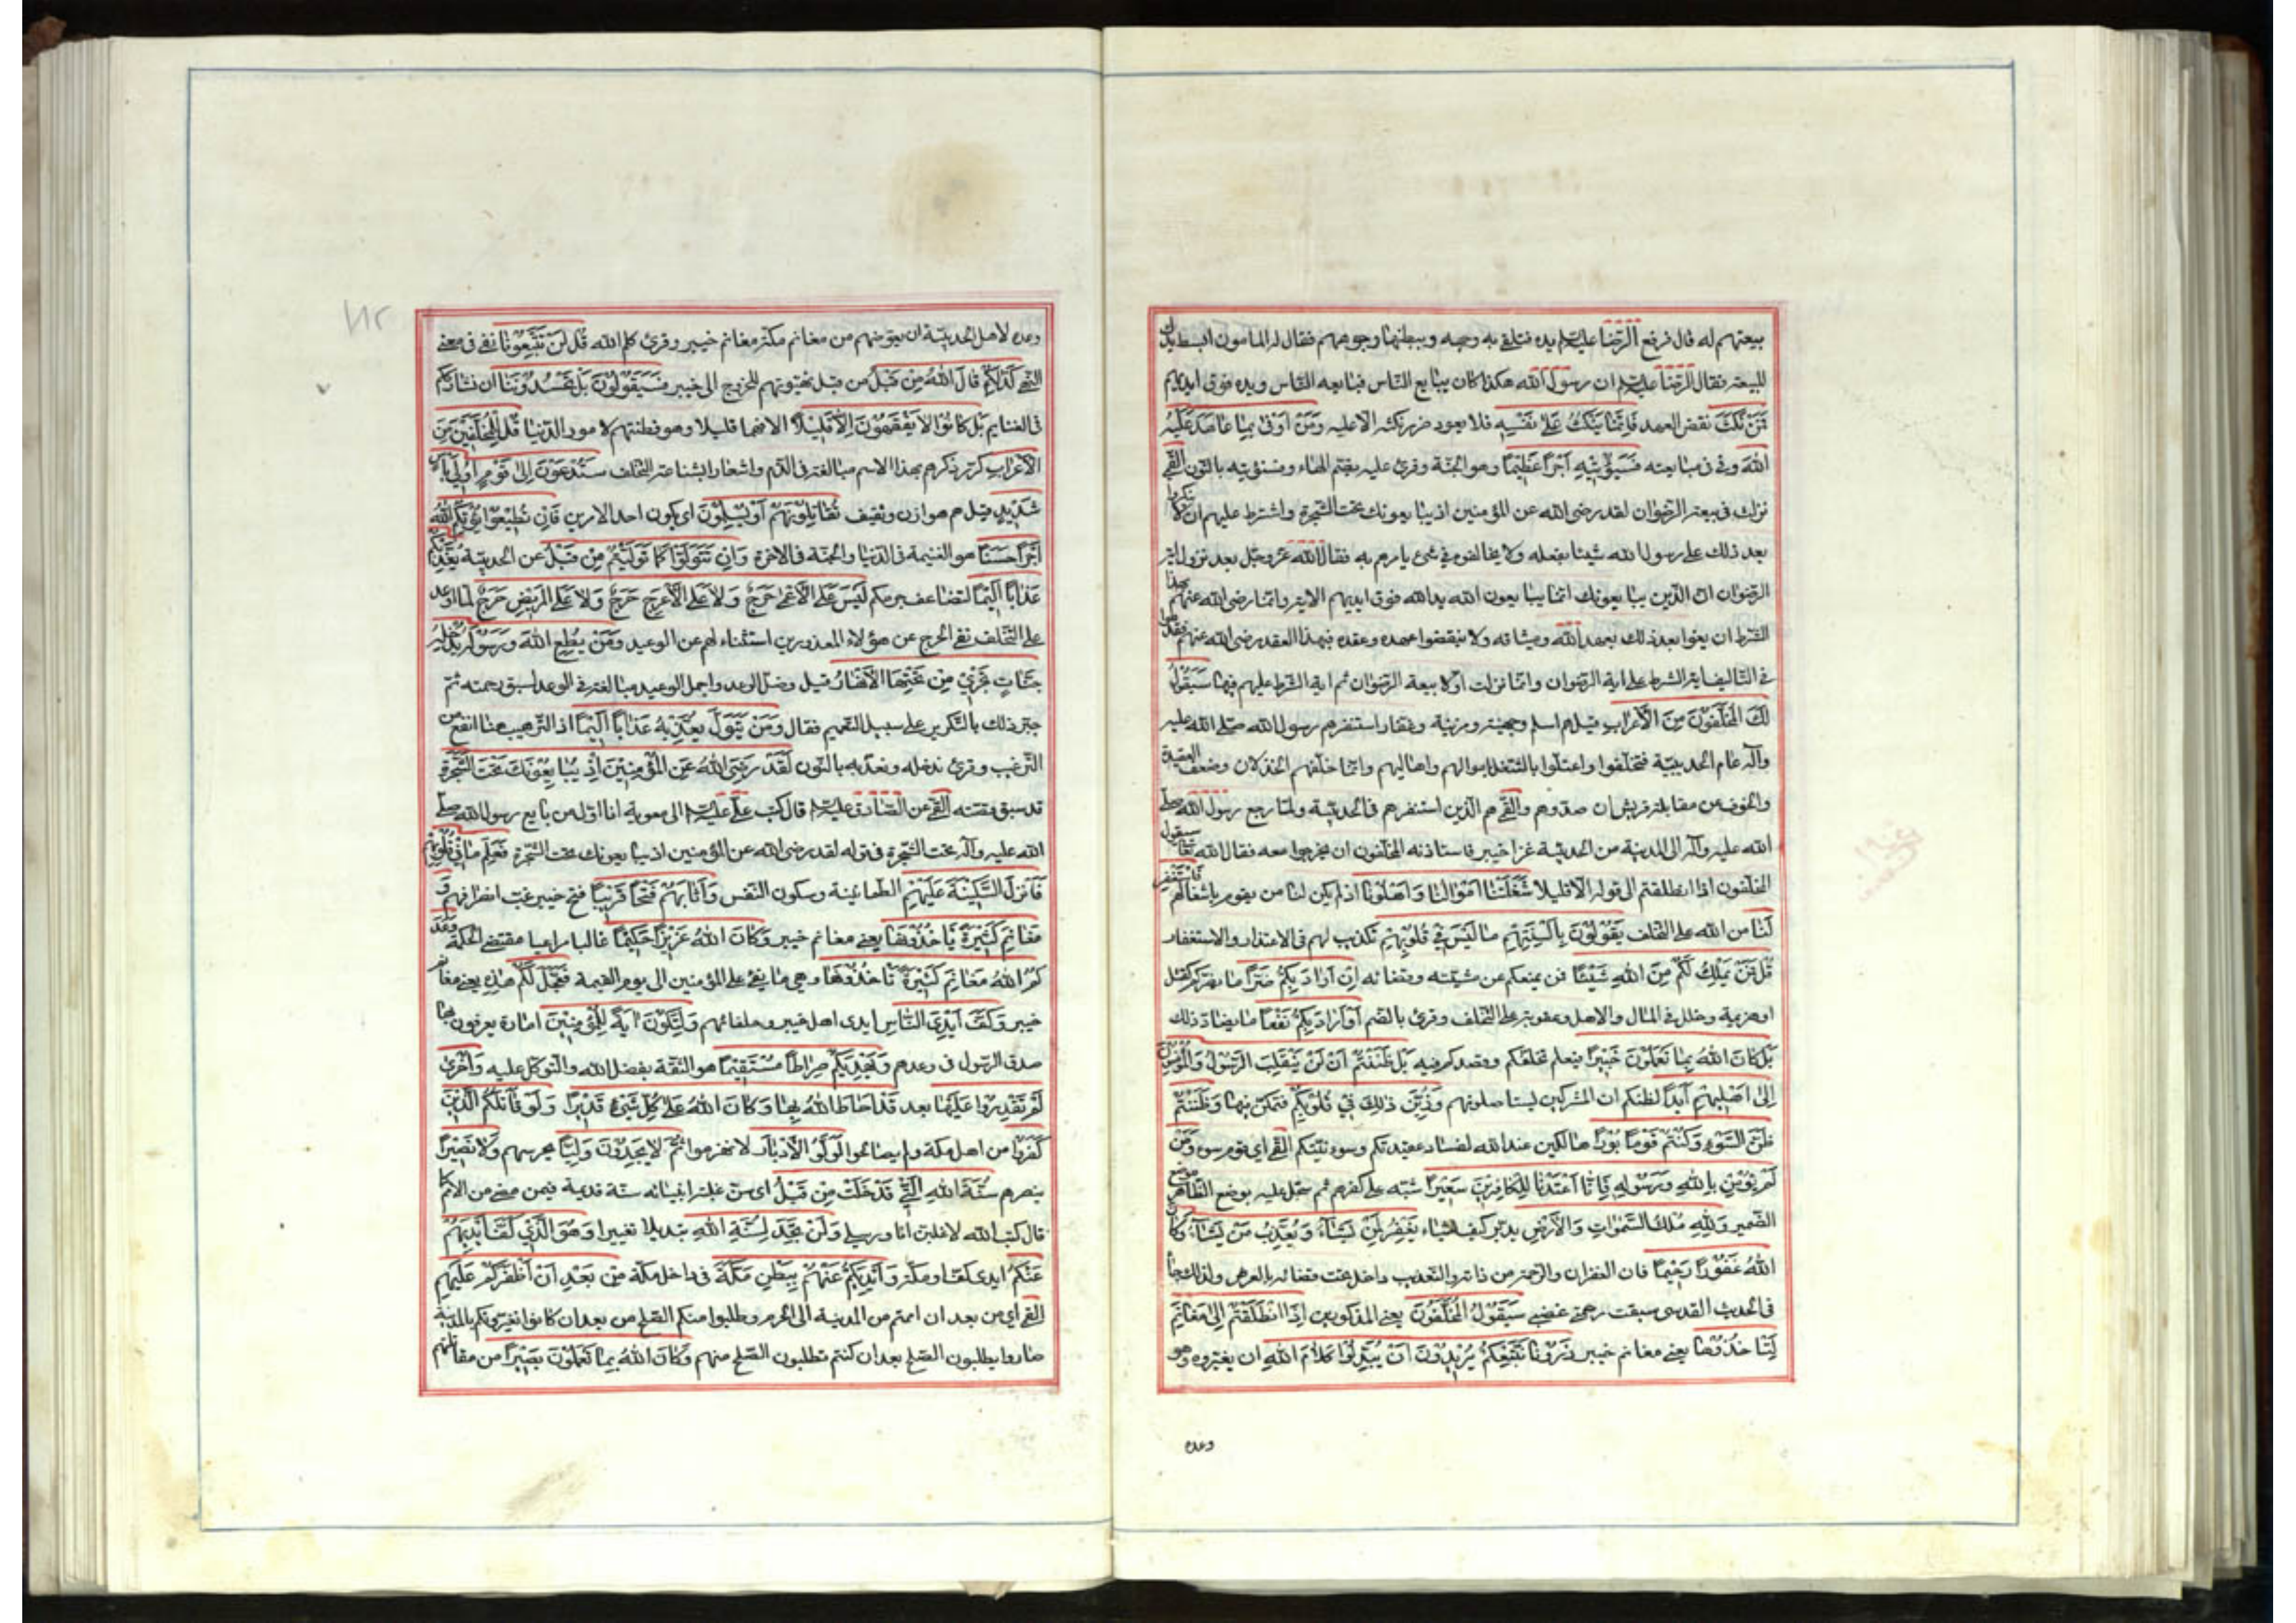 بيعتهم له قال فرفع الرّضا عليه السلام يده فتلقى به وجهه وببطنها وجوههم فقال له المامون ابسط يدك
للبيعة فقال الرّضا عليه السلام ان رسول الله هكذا كان يبايع النّاس فبايعه النّاس ويده فوق ايديهم
فَمَنْ نَكَثَ نقض العهد فَاِنَّمٰا يَنْكُثُ عَلىٰ نَفْسِهِ فلا يعود ضرر نكثه الا عليه وَمَنْ اَوْفىٰ بِمٰا عٰاهَدَ عَلَيْهُ
اللهَ وفى فى مبايعته فَسَيُؤْتِيْهِ اَجْرًا عَظِيْمًا وهو الجنّة وقرئ عليه بضم الهاء وفسنؤتيه بالنّون القمّي
نزلت فى بيعة الرّضوان لقد رضى الله عن المؤمنين اذ يبايعونك تحت الشّجرة واشترط عليهم ان لا ينكروا
بعد ذلك على رسول الله شيئا يفعله ولا يخالفوه فى شئ يامرهم به فقال الله عزّ وجلّ بعد نزول اية
الرّضوان انّ الّذين يبايعونك انّما يبايعون الله يد الله فوق ايديهم الاية وانّما رضى الله عنهم بهذا
الشّرط ان يفوا بعد ذلك بعهد الله وميثاقه ولا ينقضوا عهده وعقده فبهذا العقد رضى الله عنهم فقدّموا
فى التّاليف اية الشّرط على اية الرّضوان وانّما نزلت اوّلا بيعة الرّضوان ثم اية الشّرط عليهم فيها سَيَقُوْلُ
لَكَ الْمُخَلَّفُوْنَ مِنَ الْاَعْرٰابِ قيل هم اسلم وجهينة ومزينة وغفار استنفرهم رسول الله صلّى الله عليه
وآله عام الحديبيّة فتخلّفوا واعتلّوا بالشّغل باموالهم واهاليهم وانّما خلّفهم الخذلان وضعف العقيدة
والخوف عن مقاتلة قريش ان صدّوهم والقمّي هم الّذين استنفرهم فى الحديبيّة ولمّا رجع رسول الله صلّى
الله عليه وآله الى المدينة من الحديبيّة غزا خيبر فاستاذنه المخلّفون ان يخرجوا معه فقال الله تعالى سيقول
المخلّفون اذا انطلقتم الى قوله الّا قليلا شَغَلَتْنٰا اَمْوٰالُنٰا وَاَهْلُوْنٰا اذ لم يكن لنا من يقوم باشغالهم فَاسْتَغْفِرْ
لَنٰا من الله على التّخلف يَقُوْلُوْنَ بِاَلْسِنَتِهِمْ مٰا لَيْسَ فِيْ قُلُوْبِهِمْ تكذيب لهم فى الاعتذار والاستغفار
قُلْ فَمَنْ يَمْلِكُ لَكُمْ مِنَ اللهِ شَيْئًا فمن يمنعكم عن مشيّته وقضائه اِنْ اَرٰادَ بِكُمْ ضَرًّا ما يضرّكم كقتل
او هزيمة وخلل فى المال والاهل وعقوبة على التّخلف وقرئ بالضم اَوْ اَرٰادَ بِكُمْ نَفْعًا ما يضادّ ذلك
بَلْ كٰانَ اللهُ بِمٰا تَعْمَلُوْنَ خَبِيْرًا فيعلم تخلّفكم وقصدكم فيه بَلْ ظَنَنْتُمْ اَنْ لَنْ يَنْقَلِبَ الرَّسُوْلُ وَالْمُؤْمِنُوْنَ
اِلىٰ اَهْلِيْهِمْ اَبَدًا لظنّكم ان المشركين ليستاصلونهم وَزُيِّنَ ذٰلِكَ فِيْ قُلُوْبِكُمْ فتمكّن فيها وَظَنَنْتُمْ
ظَنَّ السَّوْءِ وَكُنْتُمْ قَوْمًا بُوْرًا هالكين عند الله لفساد عقيدتكم وسوء نيّتكم القمّي اى قوم سوء وَمَنْ
لَمْ يُؤْمِنْ بِاللهِ وَرَسُوْلِهِ فَاِنّٰا اَعْتَدْنٰا لِلْكٰافِرِيْنَ سَعِيْرًا شبّه على كفرهم ثم سجّل عليه بوضع الظّاهر موضع
الضّمير وَلِلّٰهِ مُلْكُ السَّمٰوٰاتِ وَالْاَرْضِ يدبّره كيف يشاء يَغْفِرُ لِمَنْ يَشٰآءُ وَيُعَذِّبُ مَنْ يَشٰآءُ وَكٰانَ
اللهُ غَفُوْرًا رَحِيْمًا فان الغفران والرّحمة من ذاته والتّعذيب داخل تحت قضائه بالعرض ولذلك جاء
فى الحديث القدسى سبقت رحمتى غضبى سَيَقُوْلُ الْمُخَلَّفُوْنَ يعنى المذكورين اِذَا انْطَلَقْتُمْ اِلىٰ مَغٰانِمَ
لِتَأْخُذُوْهٰا يعنى مغانم خيبر ذَرُوْنٰا نَتَّبِعْكُمْ يُرِيْدُوْنَ اَنْ يُبَدِّلُوْا كَلٰامَ اللهِ ان يغيّروه وهو
وعده
وعده لاهل الحديبيّة ان يعوّضهم من مغانم مكّة مغانم خيبر وقرئ كلم الله قُلْ لَنْ تَتَّبِعُوْنٰا نفى فى معنى
النّهى كَذٰلِكُمْ قٰالَ اللهُ مِنْ قَبْلُ من قبل تهيّؤهم للخروج الى خيبر فَسَيَقُوْلُوْنَ بَلْ تَحْسُدُوْنَنٰا ان نشارككم
فى الغنايم بَلْ كٰانُوْا لٰا يَفْقَهُوْنَ اِلّٰا قَلِيْلًا الا فهما قليلا وهو فطنتهم لامور الدّنيا قُلْ لِلْمُخَلَّفِيْنَ مِنَ
الْاَعْرٰابِ كرّر ذكرهم بهذا الاسم مبالغة فى الذّم واشعارا بشناعة التّخلف سَتُدْعَوْنَ اِلىٰ قَوْمٍ اُولِيْ بَأْسٍ
شَدِيْدٍ قيل هم هوازن وثقيف تُقٰاتِلُوْنَهُمْ اَوْ يُسْلِمُوْنَ اى يكون احد الامرين فَاِنْ تُطِيْعُوْا يُؤْتِكُمُ اللهُ
اَجْرًا حَسَنًا هو الغنيمة فى الدّنيا والجنّة فى الاخرة وَاِنْ تَتَوَلَّوْا كَمٰا تَوَلَّيْتُمْ مِنْ قَبْلُ عن الحديبيّة يُعَذِّبْكُمْ
عَذٰابًا اَلِيْمًا لتضاعف جرمكم لَيْسَ عَلَى الْاَعْمىٰ حَرَجٌ وَلٰا عَلَى الْاَعْرَجِ حَرَجٌ وَلٰا عَلَى الْمَرِيْضِ حَرَجٌ لمّا اوعد
على التّخلف نفى الحرج عن هؤلاء المعذورين استثناء لهم عن الوعيد وَمَنْ يُطِعِ اللهَ وَرَسُوْلَهُ يُدْخِلْهُ
جَنّٰاتٍ تَجْرِيْ مِنْ تَحْتِهَا الْاَنْهٰارُ قيل فصّل الوعد واجمل الوعيد مبالغة فى الوعد لسبق رحمته ثم
جبر ذلك بالتّكرير على سبيل التّعميم فقال وَمَنْ يَتَوَلَّ يُعَذِّبْهُ عَذٰابًا اَلِيْمًا اذ التّرهيب هنا انفع من
التّرغيب وقرئ ندخله ونعذّبه بالنّون لَقَدْ رَضِيَ اللهُ عَنِ الْمُؤْمِنِيْنَ اِذْ يُبٰايِعُوْنَكَ تَحْتَ الشَّجَرَةِ
قد سبق قصّته القمّي عن الصّادق عليه السلام قال كتب علىّ عليه السلام الى معوية انا اوّل من بايع رسول الله صلّى
الله عليه وآله تحت الشّجرة فى قوله لقد رضى الله عن المؤمنين اذ يبايعونك تحت الشّجرة فَعَلِمَ مٰا فِيْ قُلُوْبِهِمْ
فَاَنْزَلَ السَّكِيْنَةَ عَلَيْهِمْ الطّمأنينة وسكون النّفس وَاَثٰابَهُمْ فَتْحًا قَرِيْبًا فتح خيبر غبّ انصرافهم وَ
مَغٰانِمَ كَثِيْرَةً يَأْخُذُوْنَهٰا يعنى مغانم خيبر وَكٰانَ اللهُ عَزِيْزًا حَكِيْمًا غالبا مراعيا مقتضى الحكمة وَعَدَ
كُمُ اللهُ مَغٰانِمَ كَثِيْرَةً تَأْخُذُوْنَهٰا وهى ما يفئ على المؤمنين الى يوم القيمة فَعَجَّلَ لَكُمْ هٰذِهِ يعنى مغانم
خيبر وَكَفَّ اَيْدِيَ النّٰاسِ ايدى اهل خيبر وحلفائهم وَلِتَكُوْنَ اٰيَةً لِلْمُؤْمِنِيْنَ امارة يعرفون بها
صدق الرّسول فى وعدهم وَيَهْدِيَكُمْ صِرٰاطًا مُسْتَقِيْمًا هو الثّقة بفضل الله والتّوكل عليه وَاُخْرىٰ
لَمْ تَقْدِرُوْا عَلَيْهٰا بعد قَدْ اَحٰاطَ اللهُ بِهٰا وَكٰانَ اللهُ عَلىٰ كُلِّ شَيْءٍ قَدِيْرًا وَلَوْ قٰاتَلَكُمُ الَّذِيْنَ
كَفَرُوْا من اهل مكّة ولم يصالحوا لَوَلَّوُا الْاَدْبٰارَ لانهزموا ثُمَّ لٰا يَجِدُوْنَ وَلِيًّا يحرسهم وَلٰا نَصِيْرًا
ينصرهم سُنَّةَ اللهِ الَّتِيْ قَدْ خَلَتْ مِنْ قَبْلُ اى سنّ غلبة انبيائه سنّة قديمة فيمن مضى من الامم كما
قال كتب الله لاغلبنّ انا ورسلى وَلَنْ تَجِدَ لِسُنَّةِ اللهِ تبديلا تغييرا وَهُوَ الَّذِيْ كَفَّ اَيْدِيَهُمْ
عَنْكُمْ ايدى كفّار مكّة وَاَيْدِيَكُمْ عَنْهُمْ بِبَطْنِ مَكَّةَ فى داخل مكّة مِنْ بَعْدِ اَنْ اَظْفَرَكُمْ عَلَيْهِمْ
القمّي اى من بعد ان اممتم من المدينة الى الحرم وطلبوا منكم الصّلح من بعد ان كانوا يغزونكم بالمدينة
صاروا يطلبون الصّلح بعد ان كنتم تطلبون الصّلح منهم وَكٰانَ اللهُ بِمٰا تَعْمَلُوْنَ بَصِيْرًا من مقاتلتهم